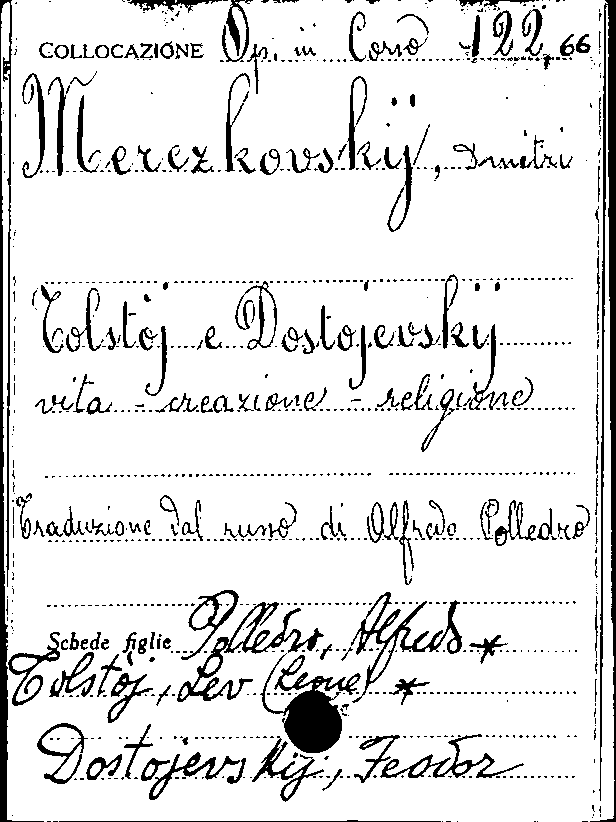 COLLOCAZIONE Op. in Corso 122,66
Merezkovskÿ, Dmitri
Tolstòj e Dostojevskÿ
vita - creazione - religione
Traduzione dal russo di Alfredo Polledro
Schede figlie Polledro, Alfredo *
Tolstòj, Lev (Leone) *
Dostojevskij, Feodor